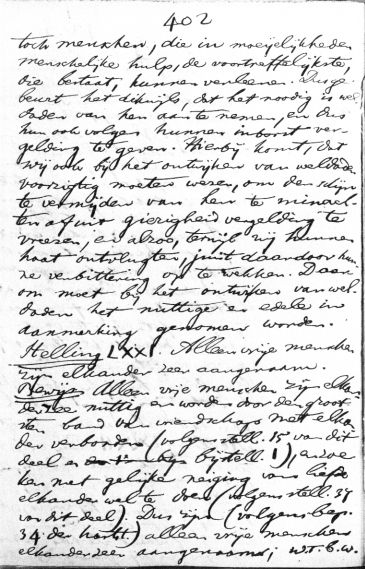 402
toch menschen, die in moeijelijkheden
menschelijke hulp, de voortreffelijkste,
die bestaat, kunnen verleenen. Dus ge-
beurt het dikwijls, dat het noodig is wel-
daden van hen aan te nemen, en dus
hun ook volgens hunnen inborst ver-
gelding te geven. Hierbij komt, dat
wij ook bij het ontwijken van weldaden
voorzigtig moeten wezen, om den schijn
te vermijden van hen te minach-
ten of uit gierigheid vergelding te
vreezen, en alzoo, terwijl wij hunnen
haat ontvlugten, juist daardoor hun-
ne verbittering op te wekken. Daar-
om moet bij het ontwijken van wel-
daden het nuttige en edele in
aanmerking genomen worden.
Stelling LXXI. Alleen vrije menschen
zijn elkander zeer aangenaam.
Bewijs. Alleen vrije menschen zijn elkan-
der zeer nuttig en worden door den groot-
sten band van vriendschap met elkan-
der verbonden (volgens stell. 35 van dit
deel en bijstell. 1), en
met gelijke neiging van liefde
elkander wel te doen (volgens stell. 37
van dit deel). Dus zijn (volgens bep.
34 der hartst.) alleen vrije menschen
elkander zeer aangenaam; w.t.b.w.